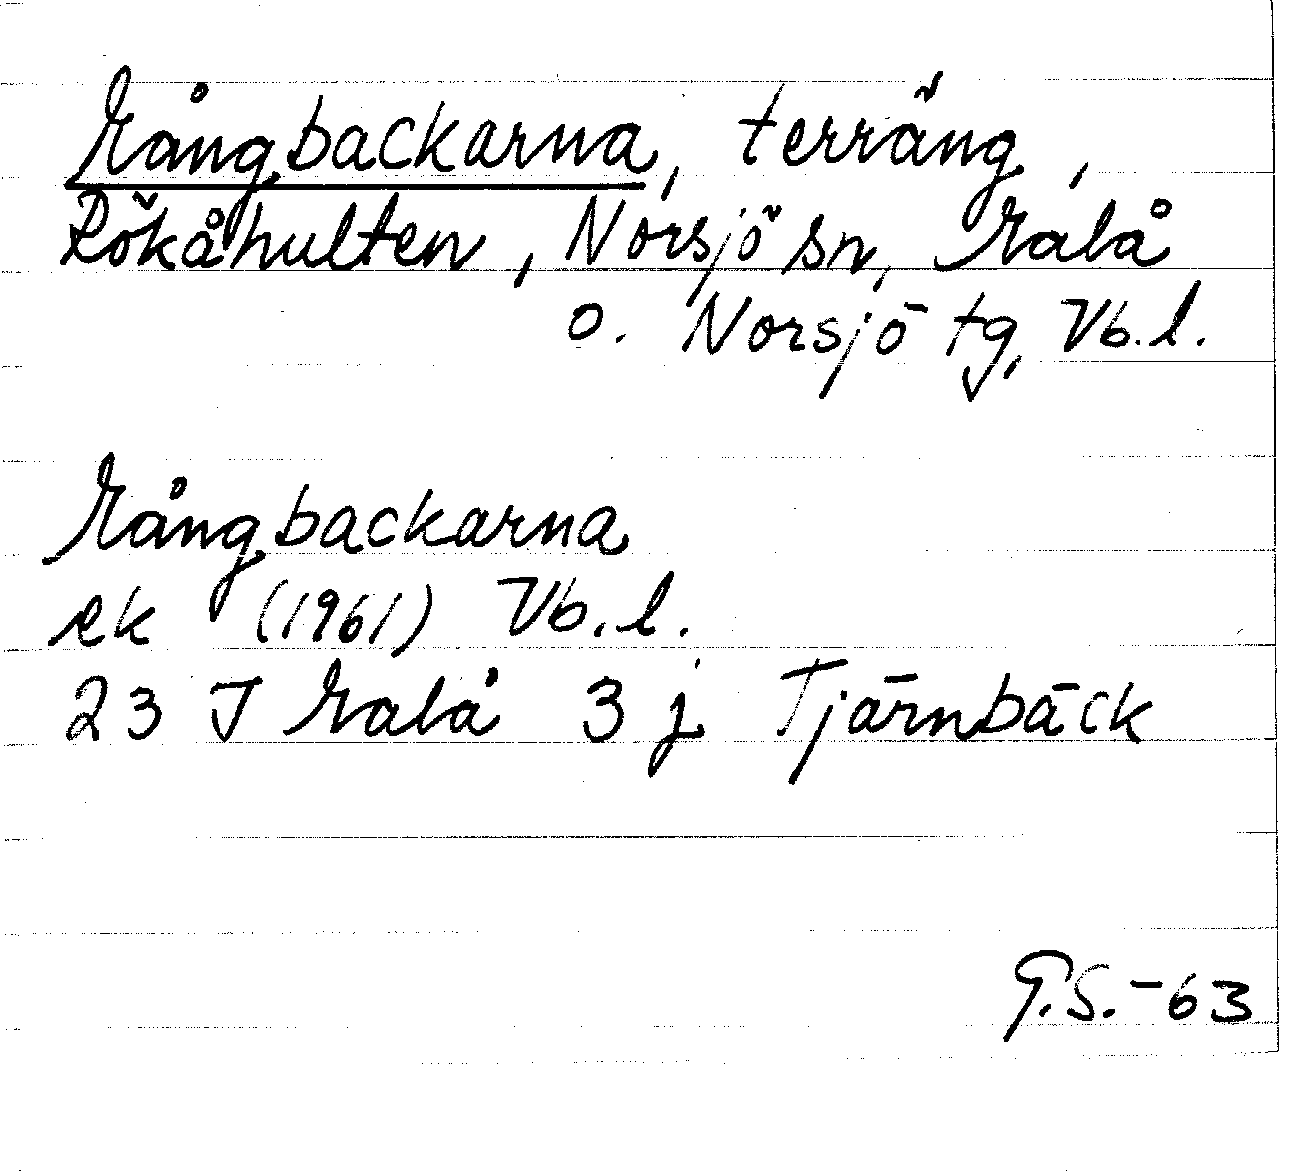 Mångbackarna, terräng,
Rökåhulten, Norsjö sn, Malå
o. Norsjö tg, Vb.l.
Mångbackarna
ek (1961) Vb.l.
23 J Malå 3 j Tjärnbäck
G.S.-63